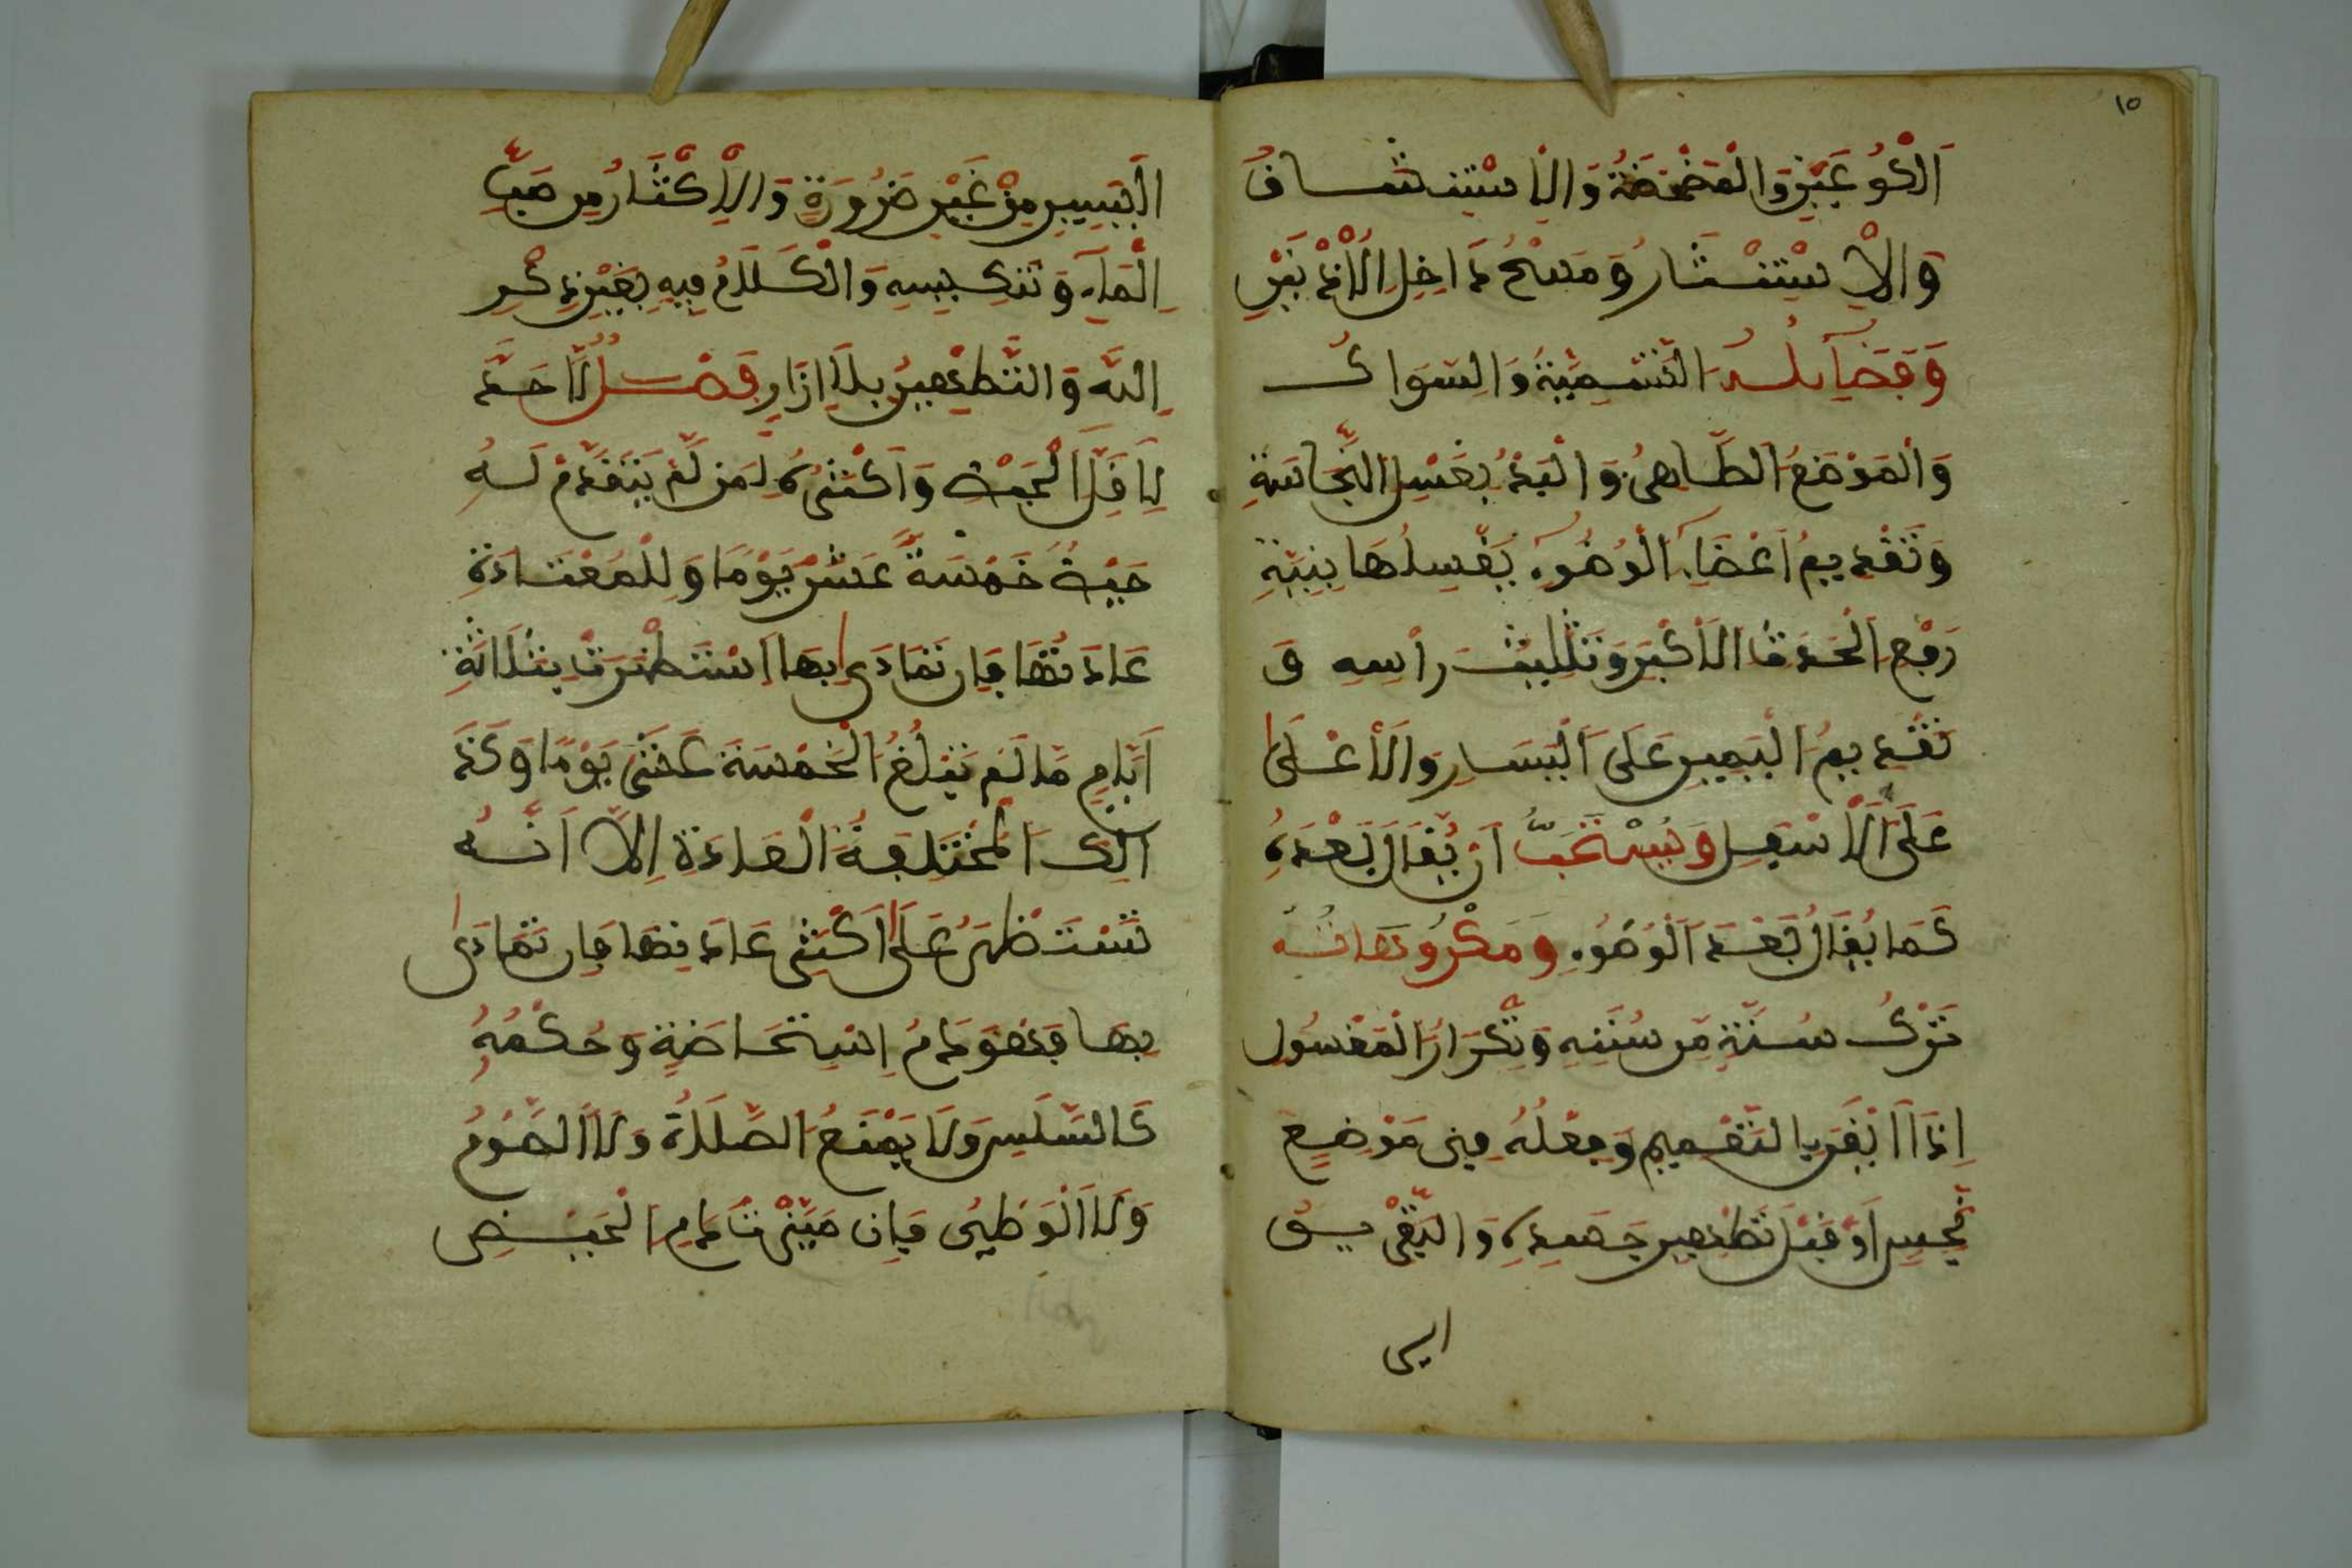 ١٥
اَلْكُوعَيْنِ وَالْمَضْمَضَةُ وَالْاِسْتِنشَاقُ
وَالْاِسْتِنْثَارُ وَمَسْحُ دَاخِلِ الْاُذْنَيْنِ
وَفَضَآئِلُهُ التَّسْمِيَّةُ وَالسِّوَاكُ
وَالْمَوْضَعُ الطَّاهِرُ وَالْبَدْءُ بِغَسْلِ النَّجَاسَةِ
وَتَقْدِيمُ اَعْضَآءِ الْوُضُوءِ يَغْسِلُهَا بِنِيَّةِ
رَفْعِ الْحَدَثِ الْاَكْبَرِ وَتَثْلِيثُ رَاْسِهِ وَ
تَقْدِيمُ الْيَمِينِ عَلَى الْيَسَارِ وَالْأَعْلَى
عَلَى الْاَسْفَلِ وَيُسْتَحَبُّ اَنْ يُقَالَ بَعْدَهُ
كَمَا يُقَالُ بَعْدَ الْوُضُوءِ وَمَكْرُوهَاتُهُ
تَرْكُ سُنَّةٍ مِنْ سُنَنِهِ وَتِكْرَارُ الْمَغْسُولِ
اِذَا اَنْقَى بِالتَّعْمِيمِ وَفِعْلُهُ فِى مَوْضِعٍ
نَجِسٍ اَوْ قَبْلَ تَطْهِيرِ جَسَدِهِ وَالتَّفْرِيقُ
اليسير
الْيَسِيرِ مِنْ غَيْرِ ضَرُورَةٍ وَالْاِكْثَارُ مِن صَبِّ
الْمَآءِ وَتَنكِيسِهِ وَالْكَلَامُ فِيهِ بِغَيْرِ ذِكْرِ
اللهِ وَالتَّطْهِيرُ بِلَا اِزَارٍ فَصْلٌ لَا حَدَّ
لِاَقَلِّ الْحَيْضِ وَاَكْثَرُهُ لِمَن لَّمْ يَتَقَدَّمْ لَهُ
حَيْضٌ خَمْسَةَ عَشْرَ يَوْمًا وَلِلْمُعْتَادَةِ
عَادَتُهَا فَإِن تَمَادَى بِهَا اَسْتَظْهَرَتْ بِثَلَاثَةِ
اَيَّامٍ مَا لَمْ تَبْلُغُ الْخَمْسَةَ عَشَرَ يَوْمًا وَكَذَ
الِكَ الْمُخْتَلِفَةُ الْعَادَةِ اِلَّا اَنَّهُ
تَسْتَظْهِرُ عَلَى اَكْثَرِ عَادَتِهَا فَإِن تَمَادَى
بِهَا فَهُوَ دَمُ اِسْتِحَاضَةٍ وَحُكْمُهُ
كَالسَّلَسِ وَلَا يَمْنَعُ الصَّلَاةَ وَلَا الصَّوْمُ
وَلَا الْوَطِىَ فَإِن مَيَّزَتْ دَمَ الْحَيْضِ